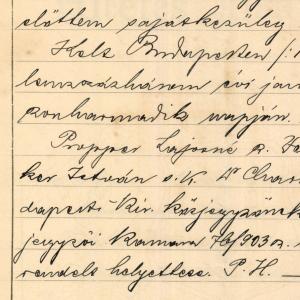 előttem sajátkezüleg
Kelt Budapesten /:1
lemszázhárom évi jan
zonharmadik napján.
Propper Lajosné s.
ker István s.k. Dr
dapesti kir. közjegyzőnek
jegyzői kamara 76/903 sz.
rendelt helyettese. P.H. —